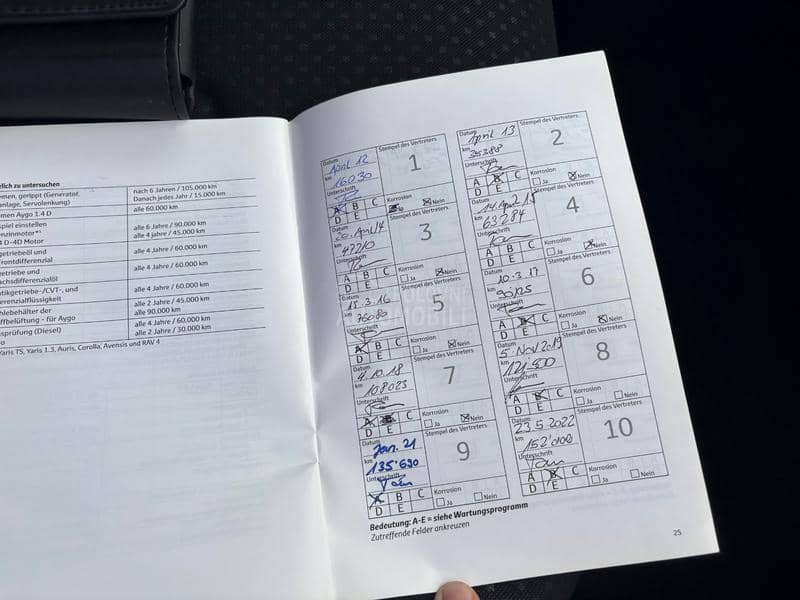 lich zu untersuchen
men, gerippt (Generator,
anlage, Servolenkung)
nach 6 Jahren / 105.000 km
Danach jedes Jahr / 15.000 km
men Aygo 1.4 D
alle 60.000 km
spiel einstellen
alle 6 Jahre / 90.000 km
alle 4 Jahre / 45.000 km
D-4D Motor
getriebeöl und
rontdifferenzial
alle 4 Jahre / 60.000 km
getriebe und
achsdifferenzialöl
alle 4 Jahre / 60.000 km
tikgetriebe-/CVT-, und
erenzialflüssigkeit
alle 4 Jahre / 60.000 km
hlebehälter der
ffbelüftung - für Aygo
alle 2 Jahre / 45.000 km
alle 90.000 km
sprüfung (Diesel)
alle 4 Jahre / 60.000 km
alle 2 Jahre / 30.000 km
Yaris TS, Yaris 1.3, Auris, Corolla, Avensis und RAV 4
Datum
April 12
km
16030
Unterschrift
Stempel des Vertreters
1
A B C
D E
Korrosion
Ja Nein
April 13
km
35288
Unterschrift
Stempel des Vertreters
2
A B C
D E
Korrosion
Ja Nein
Datum
20. April 14
km
47210
Unterschrift
Stempel des Vertreters
3
A B C
D E
Korrosion
Ja Nein
Datum
14. April 15
km
63284
Unterschrift
Stempel des Vertreters
4
A B C
D E
Korrosion
Ja Nein
Datum
15.3.16
km
76080
Unterschrift
Stempel des Vertreters
5
A B C
D E
Korrosion
Ja Nein
Datum
10.3.17
km
90125
Unterschrift
Stempel des Vertreters
6
A B C
D E
Korrosion
Ja Nein
Datum
4.10.18
km
108023
Unterschrift
Stempel des Vertreters
7
A B C
D E
Korrosion
Ja Nein
Datum
5. Nov 2019
km
121'500
Unterschrift
Stempel des Vertreters
8
A B C
D E
Korrosion
Ja Nein
Datum
Jan. 21
km
135'690
Unterschrift
Stempel des Vertreters
9
A B C
D E
Korrosion
Ja Nein
Datum
23.5.2022
km
152'000
Unterschrift
Stempel des Vertreters
10
A B C
D E
Korrosion
Ja Nein
Bedeutung: A-E = siehe Wartungsprogramm
Zutreffende Felder ankreuzen
25